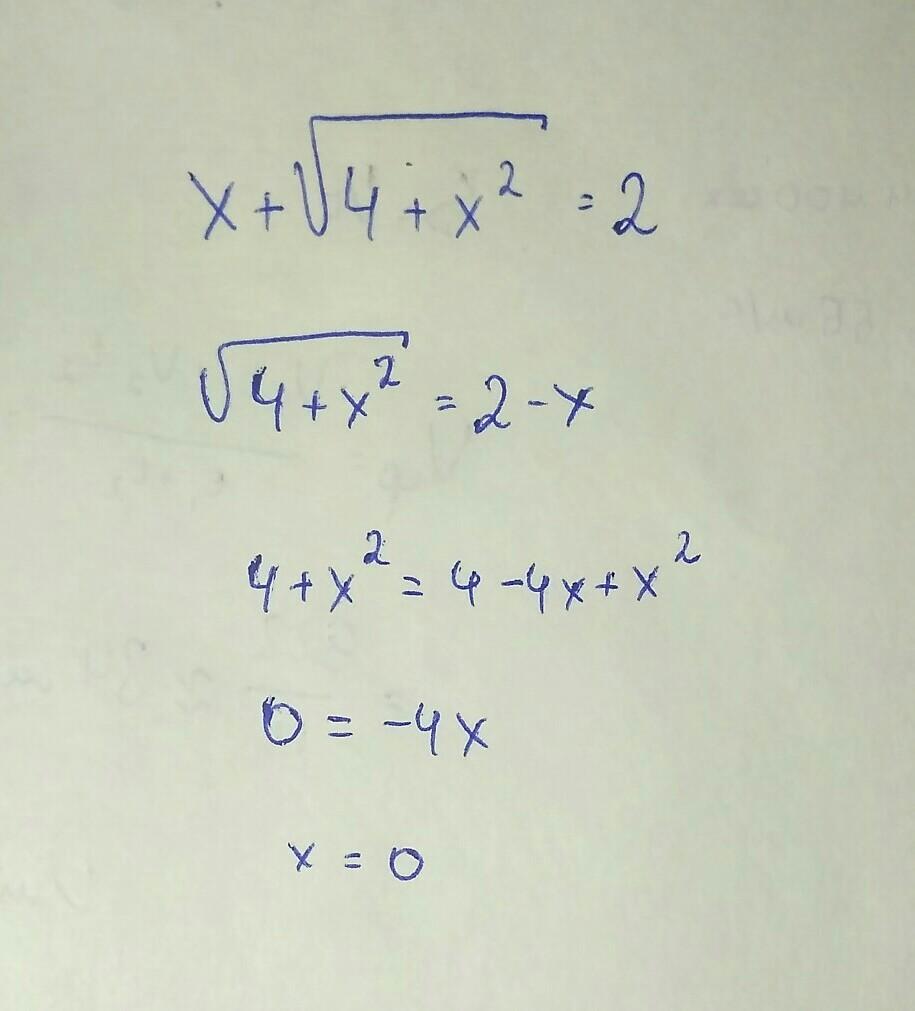 x+√4+x² = 2
√4+x² = 2-x
4+x² = 4-4x+x²
0 = -4x
x = 0